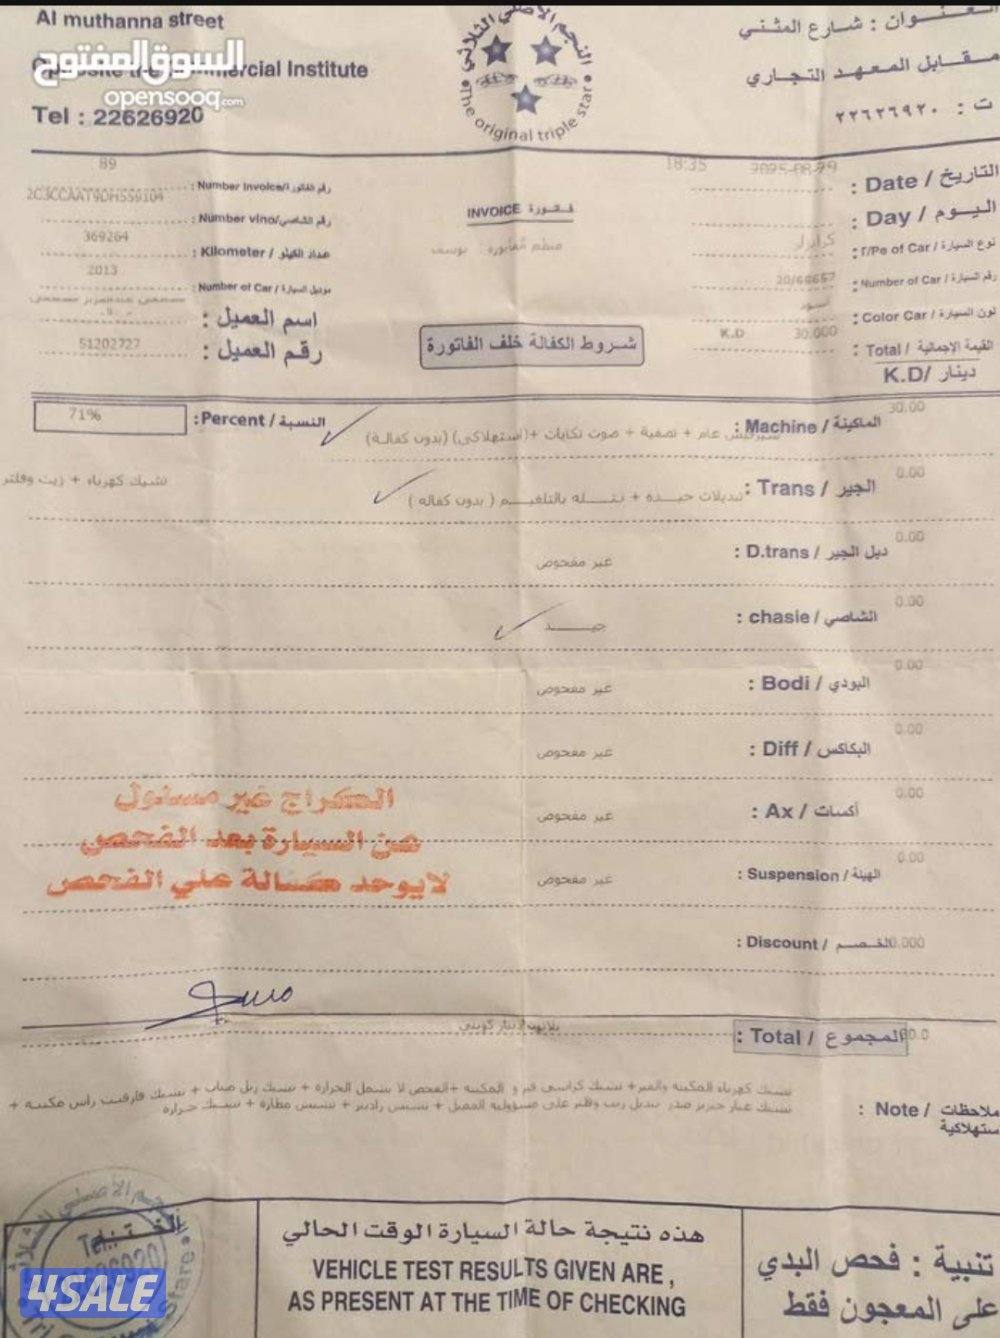 Al muthanna street
Opposite the commercial Institute
Tel : 22626920
السوق المفتوح
opensooq.com
النجم الأصلي الثلاثي
The original triple star
العنوان : شارع المثنى
مقابل المعهد التجاري
ت : ٢٢٦٢٦٩٢٠
رقم الفاتورة/Number Invoice : 89
رقم الشاصي/Number vino : 2C3CCAAT9DH559104
عداد الكيلو / Kilometer : 369264
موديل السيارة / Number of Car : 2013
اسم العميل :
رقم العميل : 51202727
فاتورة INVOICE
منظم الفاتورة : يوسف
شروط الكفالة خلف الفاتورة
التاريخ / Date : 2025-08-29 18:35
اليوم / Day :
نوع السيارة / T/Pe of Car : كرايزلر
رقم السيارة / Number of Car : 20/66657
لون السيارة / Color Car : اسود
القيمة الإجمالية / Total : 30.000 K.D
دينار /K.D
النسبة / Percent: 71%
الماكينة / Machine : 30.00
عام + تصفية + صوت تكايات +(استهلاكي) (بدون كفالة)
الجير / Trans : 0.00
تبديلات جيده + نتله بالتلغيم ( بدون كفاله )
تشيك كهرباء + زيت وفلتر
دبل الجير / D.trans : غير مفحوص 0.00
الشاصي / chasie : جيد 0.00
البودي / Bodi : غير مفحوص 0.00
البكاكس / Diff : غير مفحوص 0.00
أكسات / Ax : غير مفحوص 0.00
الهيئة / Suspension : غير مفحوص 0.00
الخصم / Discount : 0.000
الكراج غير مسئول
عن السيارة بعد الفحص
لايوجد كفالة علي الفحص
المجموع / Total :
ملاحظات / Note :
تشيك كهرباء المكينه والجير+ تشيك كراسي جير و المكينه +الفحص لا يشمل الحرارة + تشيك
ستهلاكية
هذه نتيجة حالة السيارة الوقت الحالي
VEHICLE TEST RESULTS GIVEN ARE ,
AS PRESENT AT THE TIME OF CHECKING
تنبية : فحص البدي
على المعجون فقط
4SALE